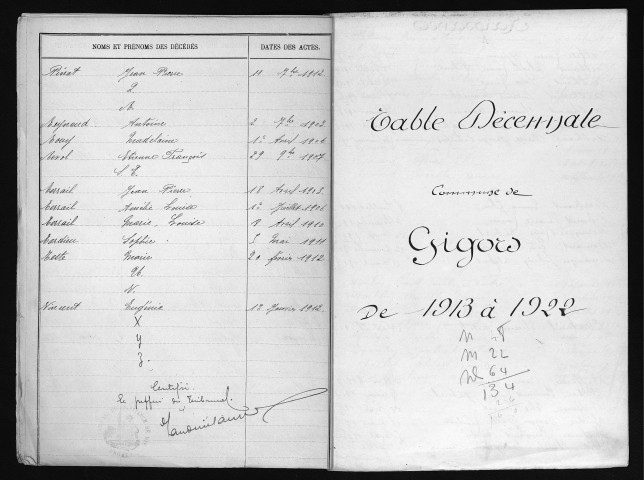 NOMS ET PRÉNOMS DES DÉCÉDÉS
DATES DES ACTES.
Jean Pierre 11 7bre 1912
Q
R
Reynaud Antoine 2 7bre 1903
Madeleine 1er Avril 1906
Etienne François 29 9bre 1907
S T.
Jean Pierre 18 Avril 1903
Amélie Louise 1er Juillet 1906
Marie Louise 8 Avril 1910
Sophie 5 Mai 1911
Marie 20 février 1912
V.
Vincent Eugénie 12 Janvier 1912.
X
Y
Z.
Certifié
Le greffier du Tribunal.
Table Décennale
Commune de
Gigors
De 1913 à 1922
N 48
M 22
D 64
134